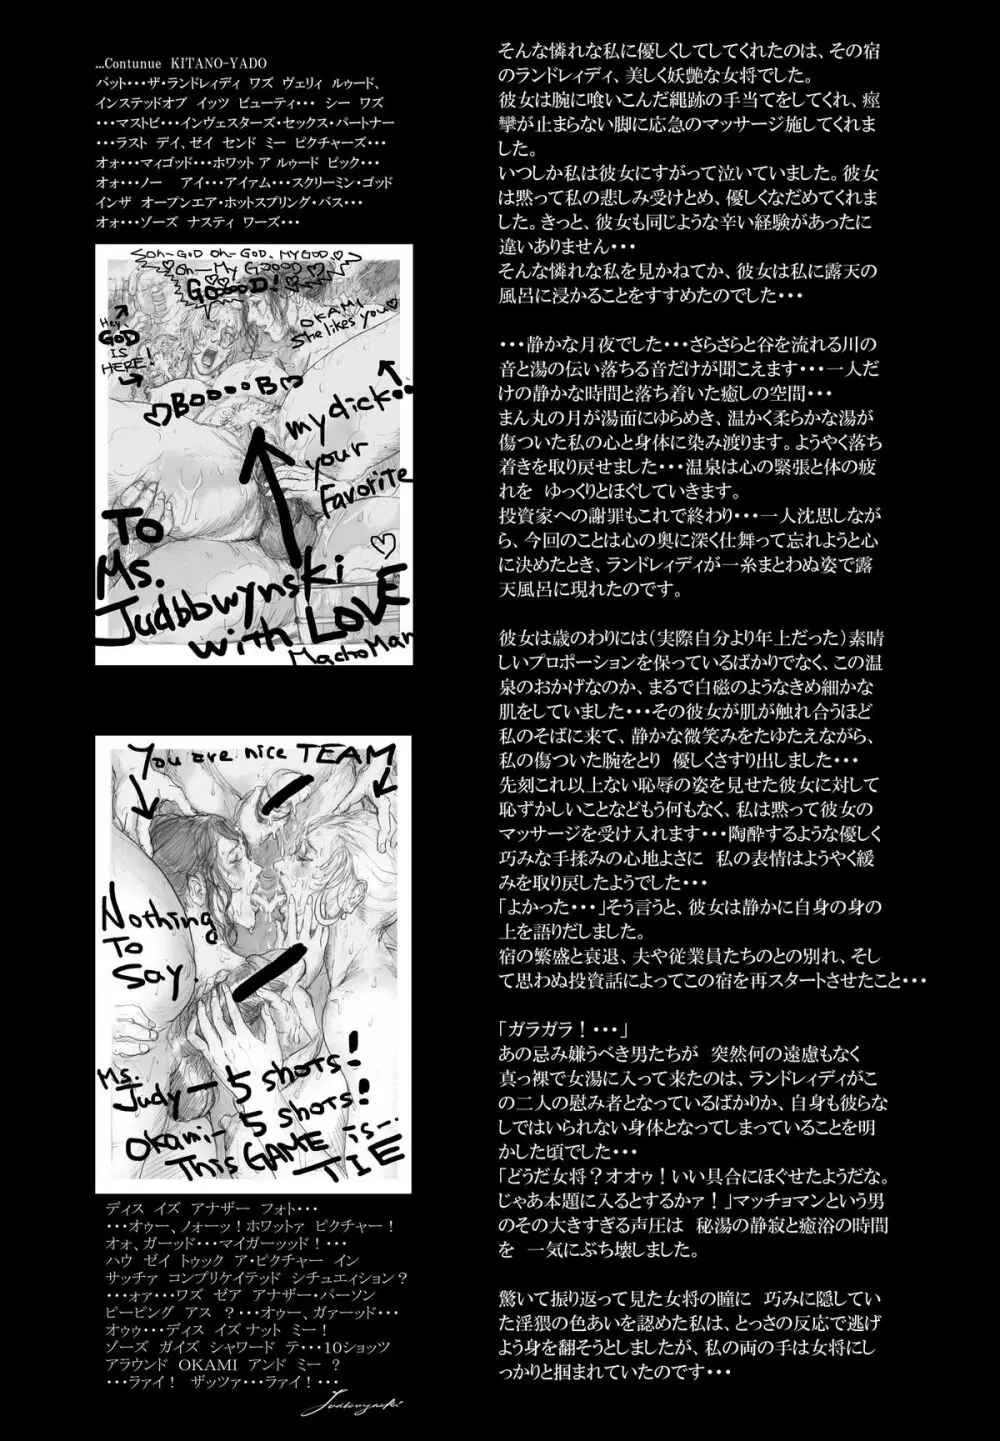 …Contunue KITANO-YADO
バット・・・ザ・ランドレィディ ワズ ヴェリィ ルゥード、
インステッドオブ イッツ ビューティ・・・ シー ワズ
・・・マストビ・・・インヴェスターズ・セックス・パートナー
・・・ラスト デイ、ゼイ センド ミー ピクチャーズ・・・
オォ・・・マィゴッド・・・ホワット ア ルゥード ピック・・・
オォ・・・ノー アイ・・・アイァム・・・スクリーミン・ゴッド
インザ オープンエア・ホットスプリング・バス・・・
オォ・・・ゾーズ ナスティ ワーズ・・・
Soh-GOD Oh-GOD, MY GOD♡
Oh—My GOOOD
GOoooD!
Hey
GOD
IS
HERE!
OKAMI
She likes you♡
♡BOOOOB♡
my dick..
your
Favorite
To
Ms.
Judbbwynski
with LOVE
MachoMan
You are nice TEAM
Nothing
To
Say.
Ms.
Judy— 5 shots!
Okami— 5 shots!
This GAME is—.
TIE
ディス イズ アナザー フォト・・・
・・・オゥー、ノォーッ！ホワットァ ピクチャー！
オォ、ガーッド・・・マイガーッッド！・・・
ハウ ゼイ トゥック ア・ピクチャー イン
サッチァ コンプリケイテッド シチュエィション？
・・・ォァ・・・ワズ ゼア アナザー・パーソン
ピーピング アス ？・・・オゥー、ガァーッド・・・
オゥゥ・・・ディス イズ ナット ミー！
ゾーズ ガイズ シャワード テ・・・10ショッツ
アラウンド OKAMI アンド ミー ？
・・・ラァイ！ ザッツァ・・・ラァイ！・・・
Judbbwynski
そんな憐れな私に優しくしてしてくれたのは、その宿
のランドレィディ、美しく妖艶な女将でした。
彼女は腕に喰いこんだ縄跡の手当てをしてくれ、痙
攣が止まらない脚に応急のマッサージ施してくれま
した。
いつしか私は彼女にすがって泣いていました。彼女
は黙って私の悲しみ受けとめ、優しくなだめてくれま
した。きっと、彼女も同じような辛い経験があったに
違いありません・・・
そんな憐れな私を見かねてか、彼女は私に露天の
風呂に浸かることをすすめたのでした・・・
・・・静かな月夜でした・・・さらさらと谷を流れる川の
音と湯の伝い落ちる音だけが聞こえます・・・一人だ
けの静かな時間と落ち着いた癒しの空間・・・
まん丸の月が湯面にゆらめき、温かく柔らかな湯が
傷ついた私の心と身体に染み渡ります。ようやく落ち
着きを取り戻せました・・・温泉は心の緊張と体の疲
れを ゆっくりとほぐしていきます。
投資家への謝罪もこれで終わり・・・一人沈思しなが
ら、今回のことは心の奥に深く仕舞って忘れようと心
に決めたとき、ランドレィディが一糸まとわぬ姿で露
天風呂に現れたのです。
彼女は歳のわりには（実際自分より年上だった）素晴
しいプロポーションを保っているばかりでなく、この温
泉のおかげなのか、まるで白磁のようなきめ細かな
肌をしていました・・・その彼女が肌が触れ合うほど
私のそばに来て、静かな微笑みをたゆたえながら、
私の傷ついた腕をとり 優しくさすり出しました・・・
先刻これ以上ない恥辱の姿を見せた彼女に対して
恥ずかしいことなどもう何もなく、私は黙って彼女の
マッサージを受け入れます・・・陶酔するような優しく
巧みな手揉みの心地よさに 私の表情はようやく緩
みを取り戻したようでした・・・
「よかった・・・」そう言うと、彼女は静かに自身の身の
上を語りだしました。
宿の繁盛と衰退、夫や従業員たちのとの別れ、そし
て思わぬ投資話によってこの宿を再スタートさせたこと・・・
「ガラガラ！・・・」
あの忌み嫌うべき男たちが 突然何の遠慮もなく
真っ裸で女湯に入って来たのは、ランドレィディがこ
の二人の慰み者となっているばかりか、自身も彼らな
しではいられない身体となってしまっていることを明
かした頃でした・・・
「どうだ女将？オオゥ！いい具合にほぐせたようだな。
じゃあ本題に入るとするかァ！」マッチョマンという男
のその大きすぎる声圧は 秘湯の静寂と癒浴の時間
を 一気にぶち壊しました。
驚いて振り返って見た女将の瞳に 巧みに隠してい
た淫猥の色あいを認めた私は、とっさの反応で逃げ
よう身を翻そうとしましたが、私の両の手は女将にし
っかりと掴まれていたのです・・・